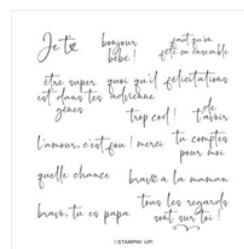 Je t'
bonjour
bébé !
faut qu'on
fête ça ensemble
être super
est dans tes
gènes
quoi qu'il
advienne
felicitations
trop cool !
de
t'avoir
l'amour, c'est fou !
merci
tu comptes
pour moi
quelle chance
bravo à la maman
bravo, tu es papa
tous les regards
sont sur toi !
©STAMPIN' UP!